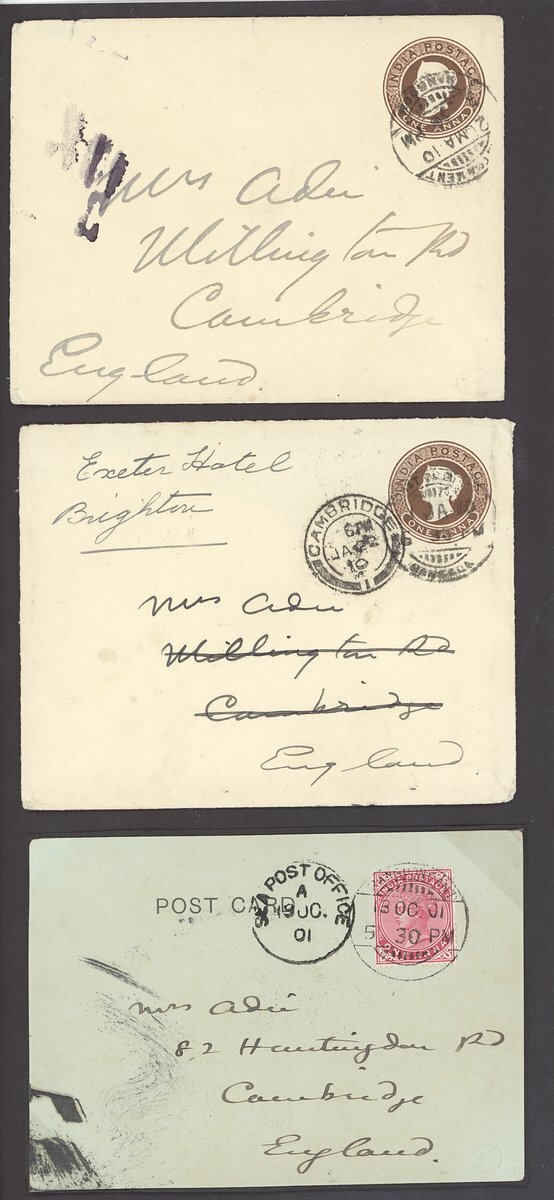 INDIA POSTAGE
ONE ANNA
MA 10
Mrs Adie
Millington Rd
Cambridge
England.
Exeter Hotel
Brighton
INDIA POSTAGE
ONE ANNA
CAMBRIDGE
6 PM
JA 22
10
1
Mrs Adie
Millington Rd
Cambridge
England
POST CARD
SEA POST OFFICE
A
19 OC.
01
INDIA POSTAGE
ONE ANNA
13 OC. 01
5 30 PM
Mrs Adie
82 Huntingdon Rd
Cambridge
England.